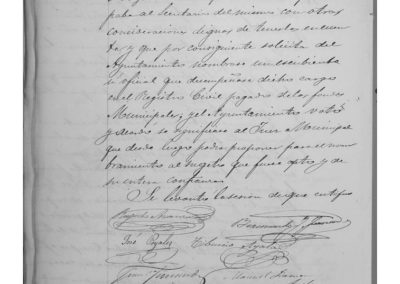 paba al Secretario del mismo con otras
consideraciones dignas de tenerse en cuen
ta y que por consiguiente solicita del
Ayuntamiento nombrase un escribiente
ú oficial que desempeñase dicho cargo
en el Registro Civil pagados de los fondos
Municipales, y el Ayuntamiento
y acordó se significase al Juez Municipal
que desde luego podia proponer para el nom
bramiento al sugeto que fuese apto y de
su entera confianza.
Se levantó la sesion de que certifico
José
Tiburcio Ayala
Juan
Manuel